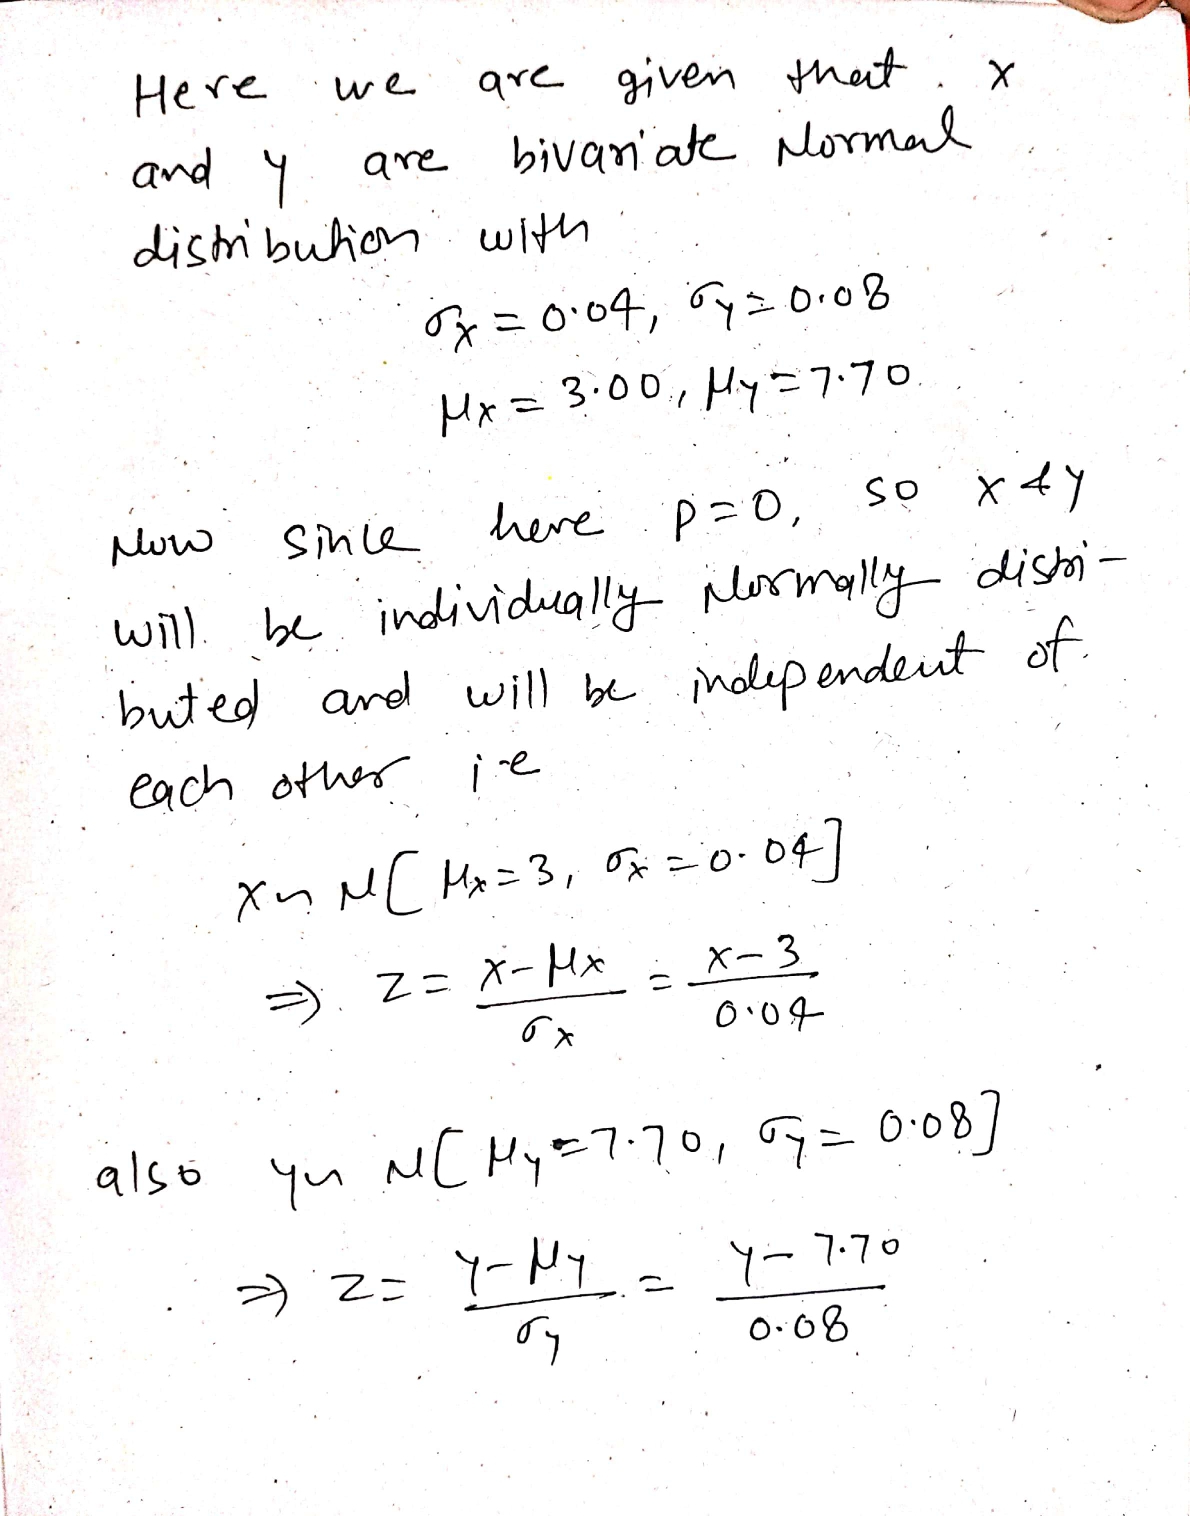 Here we are given that x
and y are bivariate Normal
distribution with
σx = 0.04, σy = 0.08
μx = 3.00, μy = 7.70
Now since here ρ=0, so x & y
will be individually Normally distri-
buted and will be independent of
each other i.e
X ~ N[ μx=3, σx = 0.04]
⇒ Z = (X-μx)/σx = (X-3)/0.04
also y ~ N[ μy=7.70, σy = 0.08]
⇒ Z = (Y-μy)/σy = (Y-7.70)/0.08